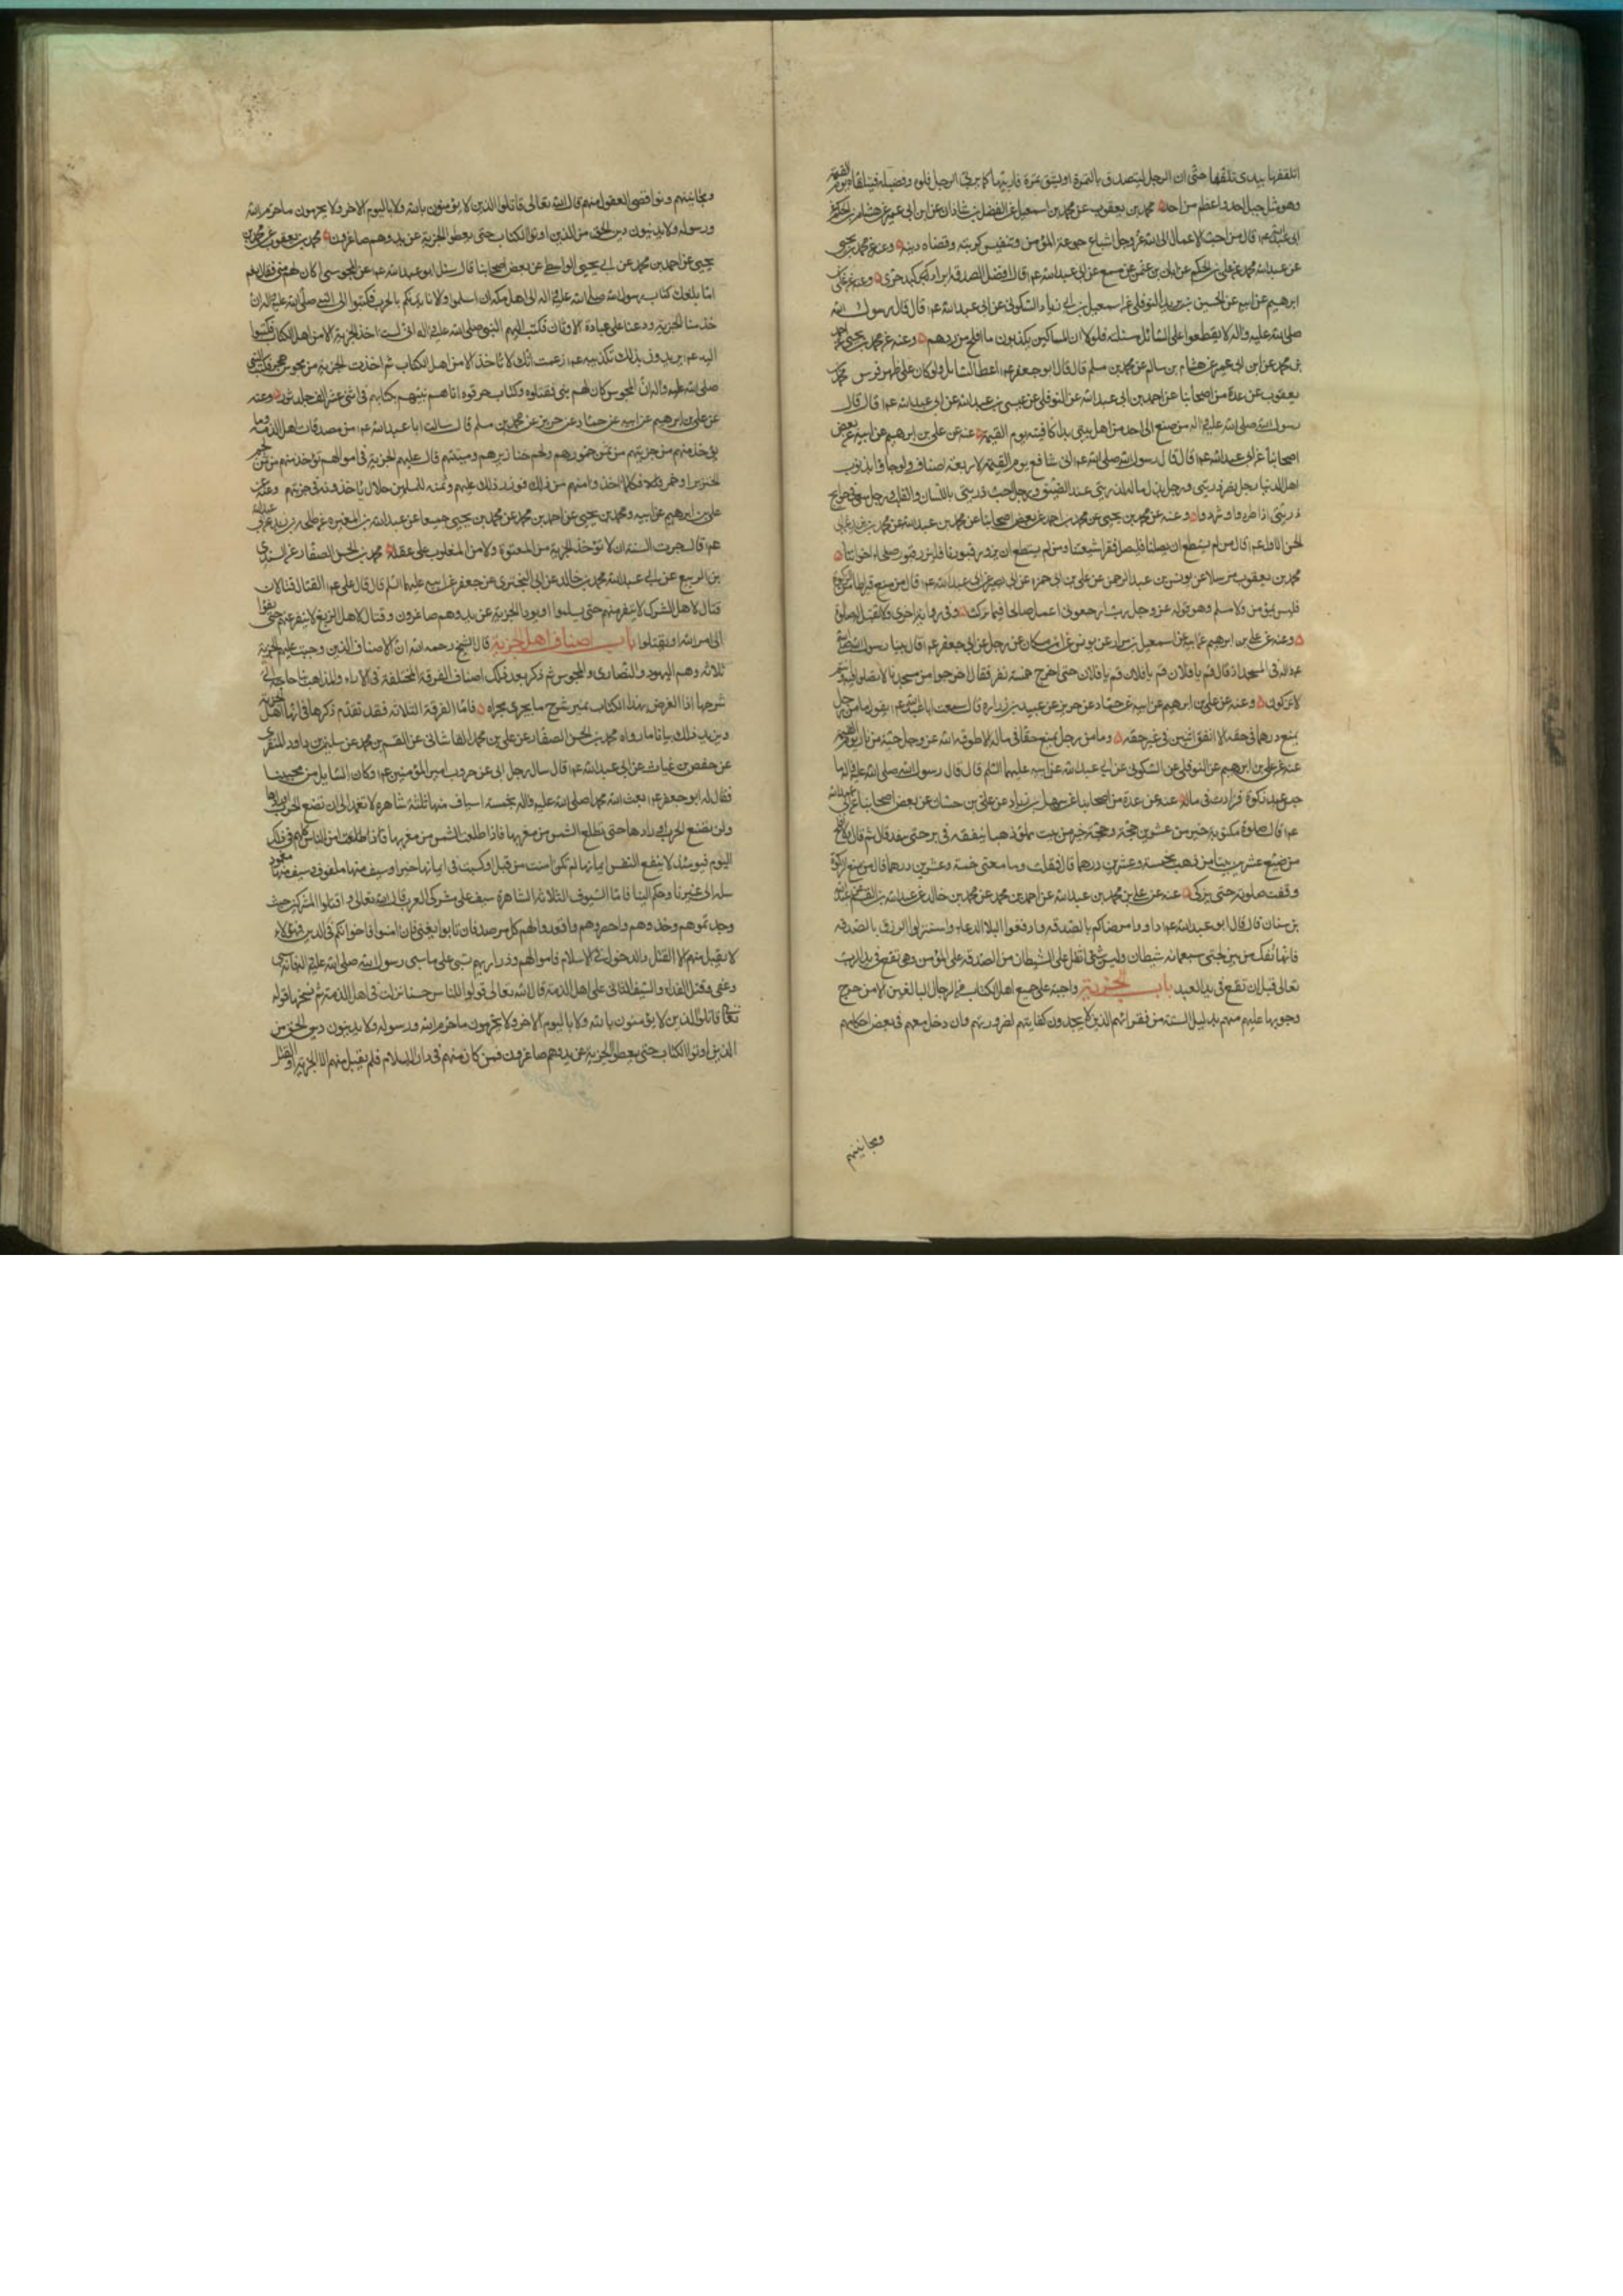 اتلقفها بيدى تلقفا حتى ان الرجل ليتصدق بالتمرة او بشق تمرة فاربيها كما يربى الرجل فلوه وفصيله فيلقاه يوم القيمة
وهو مثل جبل احد واعظم من احد محمد بن يعقوب عن محمد بن اسمعيل عن الفضل بن شاذان عن ابن ابى عمير عن هشام بن الحكم عن
ابى عبدالله ع قال من احب الاعمال الى الله عز وجل اشباع جوعة المؤمن وتنفيس كربته وقضاء دينه وعنه عن محمد بن يحيى
عن عبدالله بن محمد عن على بن الحكم عن ابان بن عثمن عن مسمع عن ابى عبدالله ع قال افضل الصدقة ابراد كبد حرى وعنه عن على بن
ابرهيم عن ابيه عن الحسين بن يزيد النوفلى عن اسمعيل بن ابى زياد السكونى عن ابى عبدالله ع قال قال رسول الله
صلى الله عليه واله لا تقطعوا على السائل مسئلته فلولا ان المساكين يكذبون ما افلح من ردهم وعنه عن محمد بن يحيى عن احمد
بن محمد عن ابن ابى عمير عن هشام بن سالم عن محمد بن مسلم قال قال ابو جعفر ع اعط السائل ولو كان على ظهر فرس محمد بن
يعقوب عن عدة من اصحابنا عن احمد بن ابى عبدالله عن النوفلى عن عيسى بن عبدالله عن ابى عبدالله ع قال قال
رسول الله صلى الله عليه واله من صنع الى احد من اهل بيتى يدا كافيته يوم القيمة عنه عن على بن ابرهيم عن ابيه عن بعض
اصحابنا عن ابى عبدالله ع قال قال رسول الله صلى الله ع انى شافع يوم القيمة لاربعة اصناف ولو جاؤا بذنوب
اهل الدنيا رجل نصر ذريتى ورجل بذل ماله لذريتى عند الضيق ورجل احب ذريتى باللسان والقلب ورجل سعى فى حوائج
ذريتى اذا طردوا وشردوا وعنه عن محمد بن يحيى عن محمد بن احمد عن بعض اصحابنا عن محمد بن عبدالله عن محمد بن يزيد عن ابى
الحسن الاول ع قال من لم يستطع ان يصلنا فليصل فقراء شيعتنا ومن لم يستطع ان يزور قبورنا فليزر قبور صلحاء اخواننا
محمد بن يعقوب مرسلا عن يونس بن عبدالرحمن عن على بن ابى حمزة عن ابى بصير عن ابى عبدالله ع قال من منع قيراطا من الزكوة
فليس بمؤمن ولا مسلم وهو قوله عز وجل رب ارجعونى اعمل صالحا فيما تركت وفى رواية اخرى ولا تقبل له صلوة
وعنه عن على بن ابرهيم عن ابيه عن اسمعيل بن مرار عن يونس عن ابن مسكان عن رجل عن ابى جعفر ع قال بينا رسول الله صلى الله
عليه واله فى المسجد اذ قال قم يا فلان قم يا فلان قم يا فلان حتى اخرج خمسة نفر فقال اخرجوا من مسجدنا لا تصلوا فيه وانتم
لا تزكون وعنه عن على بن ابرهيم عن ابيه عن حماد عن حريز عن عبيد بن زرارة قال سمعت ابا عبدالله ع يقول ما من رجل
يمنع درهما فى حقه الا انفق اثنين فى غير حقه وما من رجل يمنع حقا فى ماله الا طوقه الله عز وجل حية من نار يوم القيمة
عنه عن على بن ابرهيم عن النوفلى عن السكونى عن ابى عبدالله عن ابيه عليهما السلم قال قال رسول الله صلى الله عليه واله ما
حبس عبد زكوة فزادت فى ماله عنه عن عدة من اصحابنا عن سهل بن زياد عن على بن حسان عن بعض اصحابنا عن ابى عبدالله
ع قال صلوة مكتوبة خير من عشرين حجة وحجة خير من بيت مملو ذهبا ينفقه فى بر حتى ينفد قال ثم قال ولا افلح
من ضيع عشرين بيتا من ذهب بخمسة وعشرين درهما قال فقلت وما معنى خمسة وعشرين درهما قال من منع الزكوة
وقفت صلوته حتى يزكى عنه عن على بن محمد بن عبدالله عن احمد بن محمد عن محمد بن خالد عن عبدالله بن القسم عن عبدالله
بن سنان قال قال ابو عبدالله ع داووا مرضاكم بالصدقة وادفعوا البلاء بالدعاء واستنزلوا الرزق بالصدقة
فانها تفك من بين لحيى سبعمائة شيطان وليس شئ اثقل على الشيطان من الصدقة على المؤمن وهى تقع فى يد الرب
تعالى قبل ان تقع فى يد العبد باب الجزية واجبة على جميع اهل الكتاب من الرجال البالغين الا من خرج
وجوبها عليهم منهم بدليل السنة من فقرائهم الذين لا يجدون كفايتهم لضرورتهم وان دخل معهم فى بعض احكامهم
ومجانينهم
ومجانينهم ونواقصى العقول منهم قال الله تعالى قاتلوا الذين لا يؤمنون بالله ولا باليوم الاخر ولا يحرمون ما حرم الله
ورسوله ولا يدينون دين الحق من الذين اوتوا الكتاب حتى يعطوا الجزية عن يد وهم صاغرون محمد بن يعقوب عن محمد بن
يحيى عن احمد بن محمد عن ابى يحيى الواسطى عن بعض اصحابنا قال سئل ابو عبدالله ع عن المجوس اكان لهم نبى فقال نعم
اما بلغك كتاب رسول الله صلى الله عليه واله الى اهل مكة ان اسلموا والا نابذتكم بالحرب فكتبوا الى النبى صلى الله عليه واله ان
خذ منا الجزية ودعنا على عبادة الاوثان فكتب اليهم النبى صلى الله عليه واله انى لست اخذ الجزية الا من اهل الكتاب فكتبوا
اليه ع يريدون بذلك تكذيبه ع زعمت انك لا تاخذ الا من اهل الكتاب ثم اخذت الجزية من مجوس هجر فكتب النبى
صلى الله عليه واله ان المجوس كان لهم نبى فقتلوه وكتاب حرقوه اتاهم نبيهم بكتابهم فى اثنى عشر الف جلد ثور وعنه
عن على بن ابرهيم عن ابيه عن حماد عن حريز عن محمد بن مسلم قال سالت ابا عبدالله ع من صدقات اهل الذمة وما
يؤخذ منهم من جزيتهم من ثمن خمورهم ولحم خنازيرهم وميتتهم قال عليهم الجزية فى اموالهم تؤخذ منهم من ثمن لحم
الخنزير او خمر فكلما اخذوا منهم من ذلك فوزر ذلك عليهم وثمنه للمسلمين حلال ياخذونه فى جزيتهم وعنه عن
على بن ابرهيم عن ابيه ومحمد بن يحيى عن احمد بن محمد عن محمد بن يحيى جميعا عن عبدالله بن المغيرة عن طلحة بن زيد عن ابى عبدالله
ع قال جرت السنة ان لا تؤخذ الجزية من المعتوه ولا من المغلوب على عقله محمد بن الحسن الصفار عن السندى
بن الربيع عن ابى عبدالله محمد بن خالد عن ابى البخترى عن جعفر عن ابيه عليهما السلم قال قال على ع القتال قتالان
قتال لاهل الشرك لا ينفر منهم حتى يسلموا او يودوا الجزية عن يد وهم صاغرون وقتال لاهل الزيغ لا ينفر عنهم حتى يفيؤا
الى امر الله او يقتلوا باب اصناف اهل الجزية قال الشيخ رحمه الله ان الاصناف الذين وجبت عليهم الجزية
ثلاثة وهم اليهود والنصارى والمجوس ثم ذكر بعد ذلك اصناف الفرقة المختلفة فى الاراء والمذاهب بنا حاجة الى
شرحها اذا الغرض بهذا الكتاب شرح ما يجرى مجراه فاما الفرقة الثلاثة فقد تقدم ذكرها فى انها اهل الجزية
ويزيد ذلك بيانا ما رواه محمد بن الحسن الصفار عن على بن محمد القاشانى عن القسم بن محمد عن سليمن بن داود المنقرى
عن حفص بن غياث عن ابى عبدالله ع قال سال رجل ابى عن حروب امير المؤمنين ع وكان السايل من محبينا
فقال له ابو جعفر ع بعث الله محمدا صلى الله عليه واله بخمسة اسياف منها ثلثة شاهرة لا تغمد الى ان تضع الحرب اوزارها
ولن تضع الحرب اوزارها حتى تطلع الشمس من مغربها فاذا طلعت الشمس من مغربها امن الناس كلهم فى ذلك
اليوم فيومئذ لا ينفع النفس ايمانها لم تكن امنت من قبل او كسبت فى ايمانها خيرا وسيف منها ملفوف وسيف منها مغمود
سله الى غيرنا وحكمه الينا فاما السيوف الثلاثة الشاهرة سيف على مشركى العرب قال الله تعالى اقتلوا المشركين حيث
وجدتموهم وخذوهم واحصروهم واقعدوا لهم كل مرصد فان تابوا يعنى فان امنوا فاخوانكم فى الدين فهؤلاء
لا يقبل منهم الا القتل والدخول فى الاسلام فاموالهم وذراريهم تسبى على ما سبى رسول الله صلى الله عليه واله فانه سبى
وعفى وقبل الفداء والسيف الثانى على اهل الذمة قال الله تعالى قولوا للناس حسنا نزلت فى اهل الذمة ثم نسخها قوله
تعالى قاتلوا الذين لا يؤمنون بالله ولا باليوم الاخر ولا يحرمون ما حرم الله ورسوله ولا يدينون دين الحق من
الذين اوتوا الكتاب حتى يعطوا الجزية عن يد وهم صاغرون فمن كان منهم فى دار الاسلام فلم يقبل منهم الا الجزية او القتل